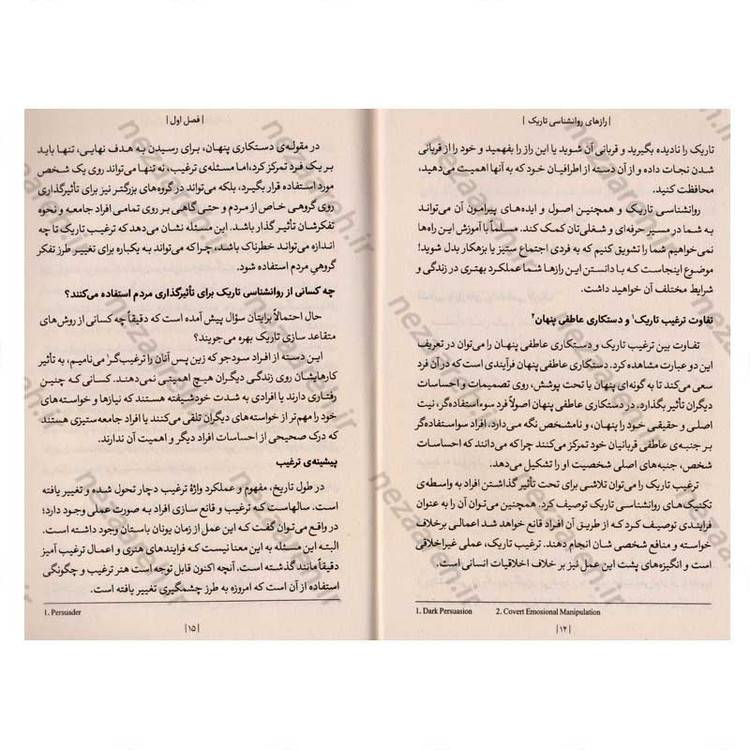 | رازهای روانشناسی تاریک |
تاریک را نادیده بگیرید و قربانی آن شوید یا این راز را بفهمید و خود را از قربانی
شدن نجات داده و از آن دسته از اطرافیان خود که به آنها اهمیت می‌دهید،
محافظت کنید.
روانشناسی تاریک و همچنین اصول و ایده‌های پیرامون آن می‌تواند
به شما در مسیر حرفه‌ای و شغلی‌تان کمک کند. مسلماً با آموزش این راه‌ها
نمی‌خواهیم شما را تشویق کنیم که به فردی اجتماع ستیز یا بزهکار بدل شوید!
موضوع اینجاست که با دانستن این رازها شما عملکرد بهتری در زندگی و
شرایط مختلف آن خواهید داشت.
تفاوت ترغیب تاریک۱ و دستکاری عاطفی پنهان۲
تفاوت بین ترغیب تاریک و دستکاری عاطفی پنهان را می‌توان در تعریف
این دو عبارت مشاهده کرد. دستکاری عاطفی پنهان فرآیندی است که در آن فرد
سعی می‌کند تا به گونه‌ای پنهان یا تحت پوشش، روی تصمیمات و احساسات
دیگران تأثیر بگذارد. در دستکاری عاطفی پنهان اصولاً فرد سوءاستفاده‌گر، نیت
اصلی و حقیقی خود را پنهان، و نامشخص نگه می‌دارد. افراد سواستفاده‌گر
بر جنبه‌ی عاطفی قربانیان خود تمرکز می‌کنند چرا که می‌دانند که احساسات
شخص، جنبه‌های اصلی شخصیت او را تشکیل می‌دهد.
ترغیب تاریک را می‌توان تلاشی برای تحت تأثیر گذاشتن افراد به واسطه‌ی
تکنیک‌های روانشناسی تاریک توصیف کرد. همچنین می‌توان آن را به عنوان
فرایندی توصیف کرد که از طریق آن افراد قانع خواهد شد اعمالی برخلاف
خواسته و منافع شخصی شان انجام دهند. ترغیب تاریک، عملی غیراخلاقی
است و انگیزه‌های پشت این عمل نیز بر خلاف اخلاقیات انسانی است.
1. Dark Persuasion 2. Covert Emosional Manipulation
| ۱۴ |
| فصل اول |
در مقوله‌ی دستکاری پنهان، برای رسیدن به هدف نهایی، تنها باید
بر یک فرد تمرکز کرد، اما مسئله‌ی ترغیب، نه تنها می‌تواند روی یک شخص
مورد استفاده قرار بگیرد، بلکه می‌تواند در گروه‌های بزرگتر نیز برای تأثیرگذاری
روی گروهی خاص از مردم و حتی گاهی بر روی تمامی افراد جامعه و نحوه
تفکرشان تأثیر گذار باشد. این مسئله نشان می‌دهد که ترغیب تاریک تا چه
اندازه می‌تواند خطرناک باشد، چرا که می‌تواند به یکباره برای تغییر طرز تفکر
گروهیِ مردم استفاده شود.
چه کسانی از روانشناسی تاریک برای تأثیرگذاری مردم استفاده می‌کنند؟
حال احتمالاً برایتان سؤال پیش آمده است که دقیقاً چه کسانی از روش‌های
متقاعد سازی تاریک بهره می‌جویند؟
این دسته از افراد سودجو که زین پس آنان را ترغیب‌گر۱ می‌نامیم، به تأثیر
کارهایشان روی زندگی دیگران هیچ اهمیتی نمی‌دهند. کسانی که چنین
رفتاری دارند یا افرادی به شدت خودشیفته هستند که نیازها و خواسته‌های
خود را مهم‌تر از خواسته‌های دیگران تلقی می‌کنند یا افراد جامعه‌ستیزی هستند
که درک صحیحی از احساسات افراد دیگر و اهمیت آن ندارند.
پیشینه‌ی ترغیب
در طول تاریخ، مفهوم و عملکرد واژهٔ ترغیب دچار تحول شده و تغییر یافته
است. سالهاست که ترغیب و قانع سازی افراد به صورت عملی وجود دارد؛
در واقع می‌توان گفت که این عمل از زمان یونان باستان وجود داشته است.
البته این مسئله به این معنا نیست که فرایندهای هنری و اعمال ترغیب آمیز
دقیقاً مانند گذشته است. آنچه اکنون قابل توجه است هنر ترغیب و چگونگی
استفاده از آن است که امروزه به طرز چشمگیری تغییر یافته است.
1. Persuader
| ۱۵ |
nezaareh.ir